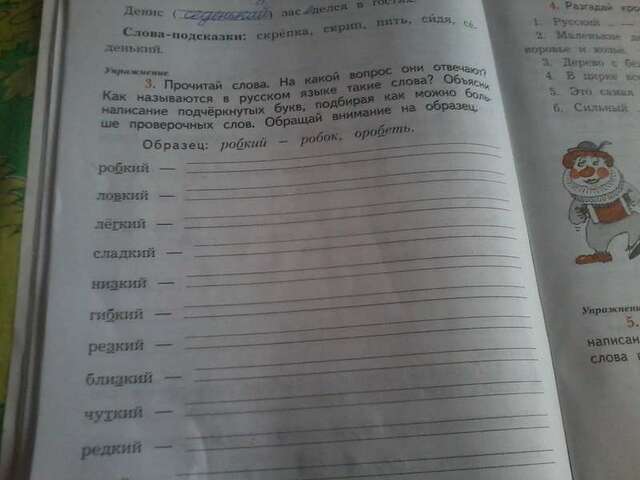 Денис (
Слова-подсказки: скрепка, скрип, нить, сидя, си
денький.
Упражнение
3. Прочитай слова. На какой вопрос они отвечают?
Как называются в русском языке такие слова? Объясни
написание подчёркнутых букв, подбирая как можно боль
ше проверочных слов. Обращай внимание на образец.
Образец: робкий – робок, оробеть.
робкий —
ловкий —
лёгкий —
сладкий —
низкий —
гибкий —
резкий —
близкий —
чуткий —
редкий —
4. Разгадай
1. Русский
2. Маленькое
3. Дерево с
4. В цирке
5. Это сама
6. Сильный
Упражнение
5.
написан
слова